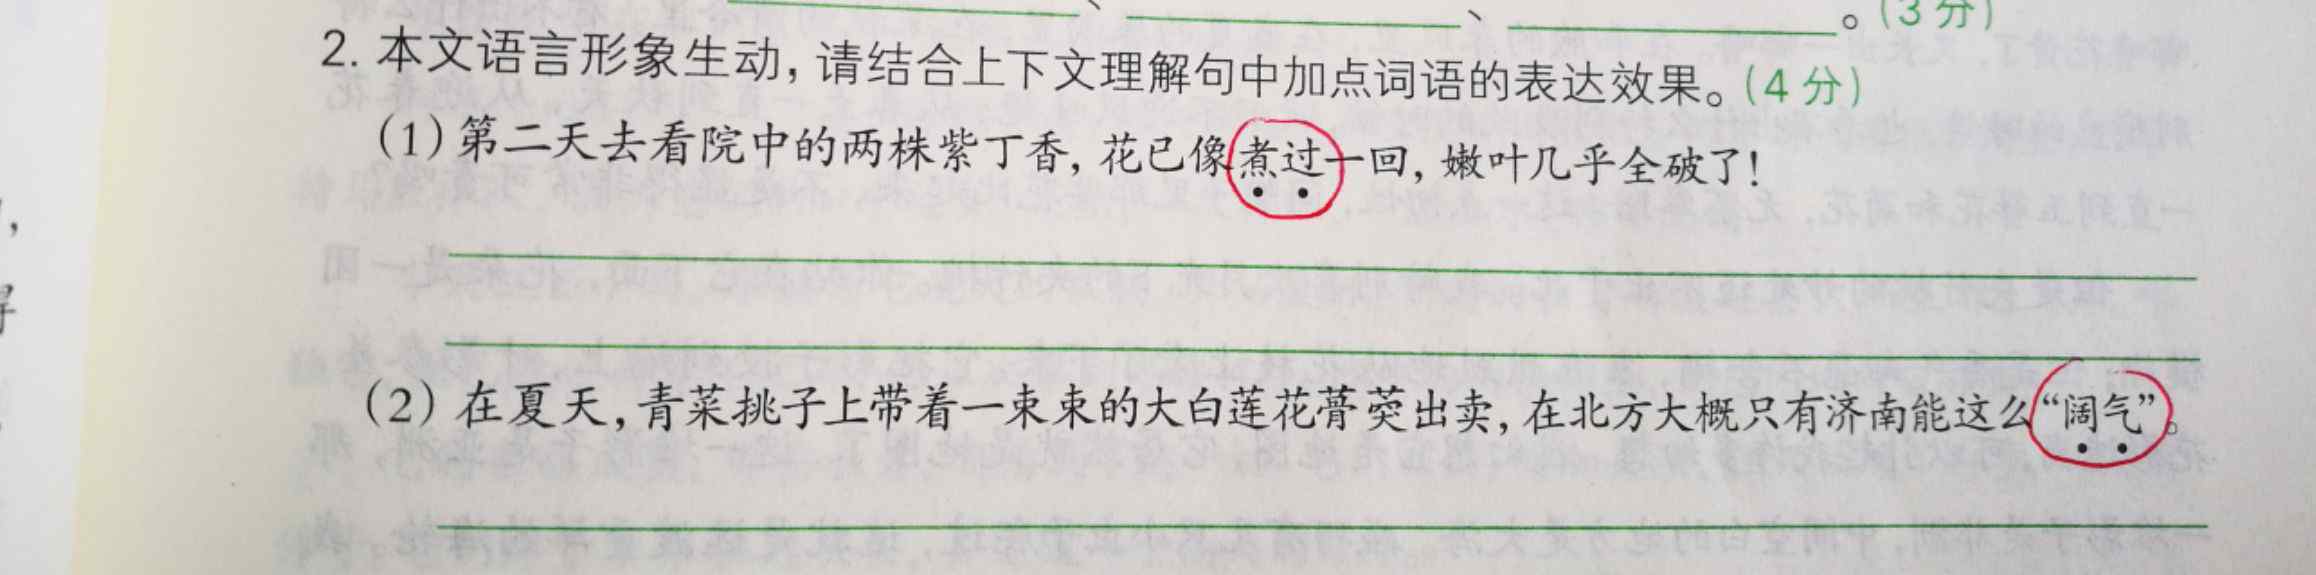 、 、 。(3分)
2. 本文语言形象生动,请结合上下文理解句中加点词语的表达效果。(4分)
(1)第二天去看院中的两株紫丁香,花已像煮过一回,嫩叶几乎全破了!
(2)在夏天,青菜挑子上带着一束束的大白莲花蓇葖出卖,在北方大概只有济南能这么“阔气”。